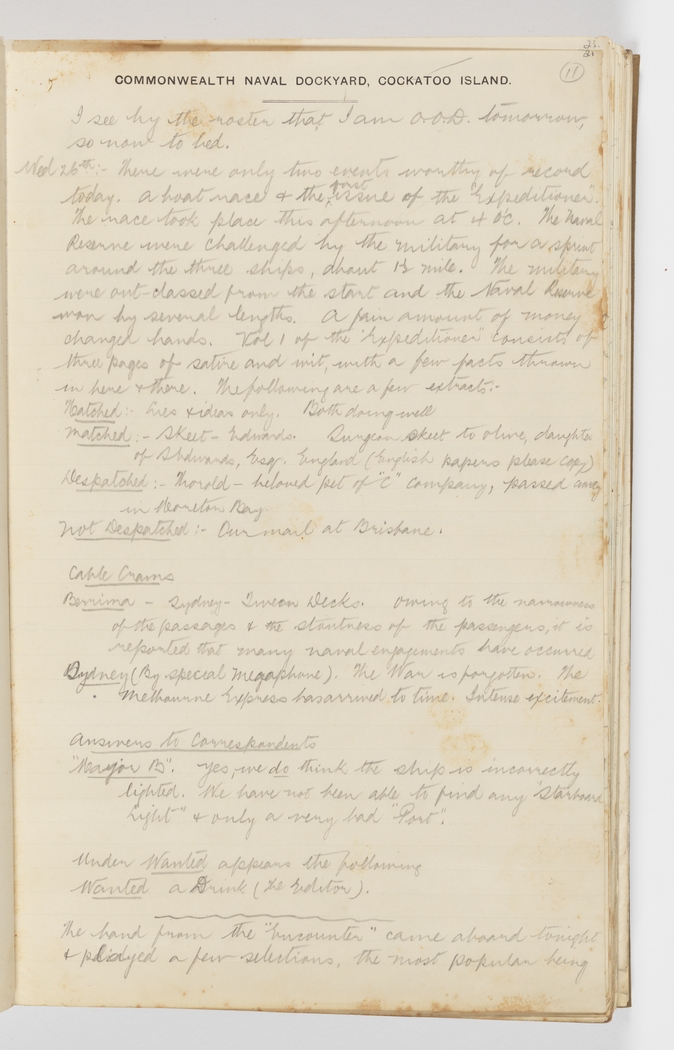 11
COMMONWEALTH NAVAL DOCKYARD, COCKATOO ISLAND.
I see by the roster that I am O.O.D. tomorrow,
so now to bed.
Wed 26th:- There were only two events worthy of record
today. A boat race & the first issue of the "Expeditioner".
The race took place this afternoon at 4 o'C. The Naval
Reserve were challenged by the military for a sprint
around the three ships, about 1½ mile. The military
were out-classed from the start and the Naval Reserve
won by several lengths. A fair amount of money
changed hands. Vol 1 of the "Expeditioner" consists of
three pages of satire and wit, with a few facts thrown
in here & there. The following are a few extracts:-
Hatched:- Lies & ideas only. Both doing well
Matched:- Skeet - Edwards. Surgeon Skeet to Olive, daughter
of Edwards, Esqr. England (English papers please copy)
Despatched:- Thorold - beloved pet of "C" Company, passed away
in Moreton Bay
Not Despatched:- Our mail at Brisbane.
Cable Crams
Berrima - Sydney - Tween Decks. Owing to the narrowness
of the passages & the stoutness of the passengers, it is
reported that many naval engagements have occurred
Sydney (By special Megaphone). The War is forgotten. The
Melbourne Express has arrived to time. Intense excitement.
Answers to Correspondents
"Major B". Yes, we do think the ship is incorrectly
lighted. We have not been able to find any "Starboard
Light" & only a very bad "Port".
Under Wanted appears the following
Wanted a Drink (The Editor).
The band from the "Encounter" came aboard tonight
& played a few selections, the most popular being